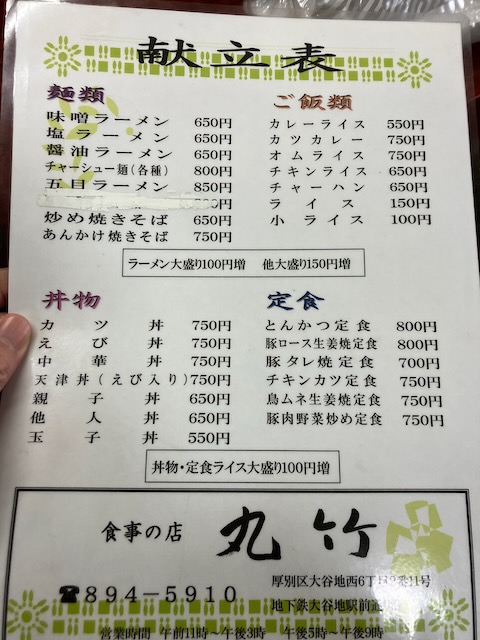 献立表
麺類
味噌ラーメン 650円
塩ラーメン 650円
醤油ラーメン 650円
チャーシュー麺(各種) 800円
五目ラーメン 850円
炒め焼きそば 650円
あんかけ焼きそば 750円
ご飯類
カレーライス 550円
カツカレー 750円
オムライス 750円
チキンライス 650円
チャーハン 650円
ライス 150円
小ライス 100円
ラーメン大盛り100円増 他大盛り150円増
丼物
カツ丼 750円
えび丼 750円
中華丼 750円
天津丼(えび入り) 750円
親子丼 650円
他人丼 650円
玉子丼 550円
定食
とんかつ定食 800円
豚ロース生姜焼定食 800円
豚タレ焼定食 700円
チキンカツ定食 750円
鳥ムネ生姜焼定食 750円
豚肉野菜炒め定食 750円
丼物・定食ライス大盛り100円増
食事の店 丸竹
☎894-5910
厚別区大谷地西6丁目2番11号
地下鉄大谷地駅前通
営業時間 午前11時～午後3時 午後5時～午後9時